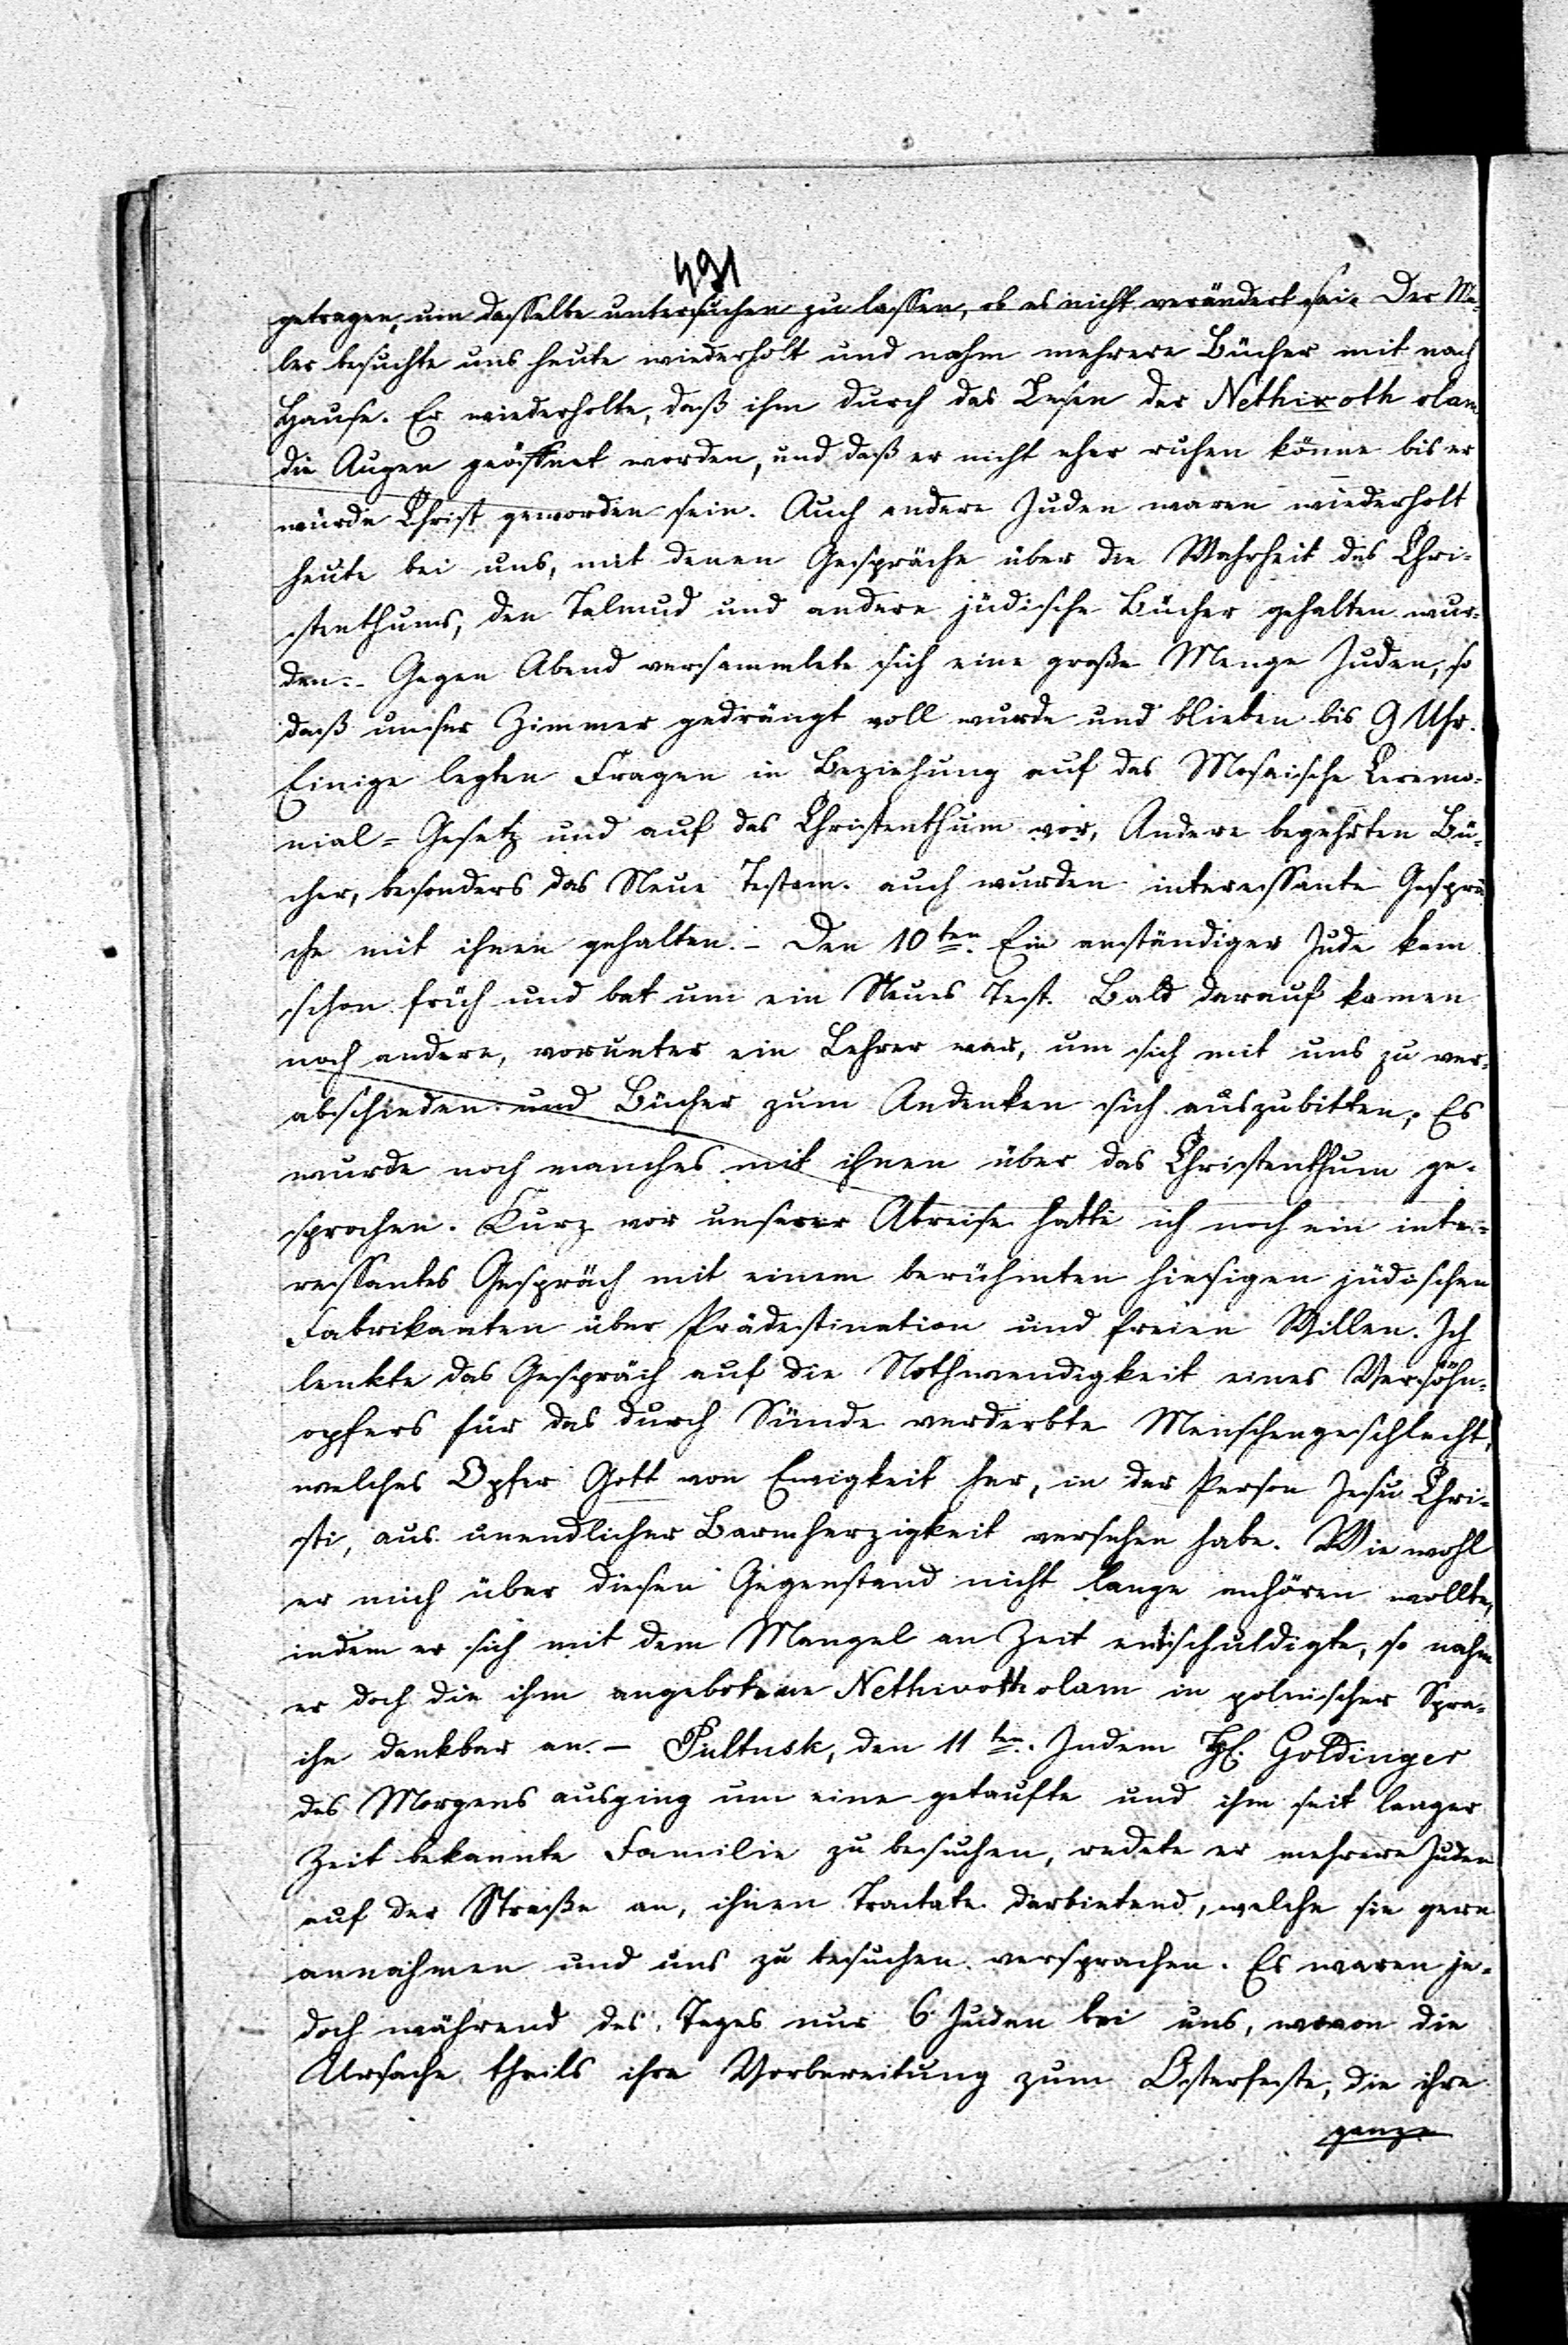 491
getragen, um dasselbe untersuchen zu lassen, ob es nicht verändert sei. Der Ma-
ler besuchte uns heute wiederholt und nahm mehrere Bücher mit nach
Hause. Er wiederholte, daß ihm durch das Lesen der Nethivoth olam
die Augen geöffnet worden, und daß er nicht eher ruhen könne bis er
würde Christ geworden sein. Auch andere Juden waren wiederholt
heute bei uns, mit denen Gespräche über die Wahrheit des Chri-
stenthums, den Talmud und andere jüdische Bücher gehalten wur-
den. – Gegen Abend versammlete sich eine große Menge Juden, so
daß unser Zimmer gedrängt voll wurde und blieben bis 9 Uhr.
Einige legten Fragen in Beziehung auf das Mosaische Ceremo-
nial-Gesetz und auf das Christenthum vor, Andere begehrten Bü-
cher, besonders das Neue Testam. auch wurden interessante Gesprä-
che mit ihnen gehalten. – Den 10ten. Ein anständiger Jude kam
schon früh und bat um ein Neues Test. Bald darauf kamen
noch andere, worunter ein Lehrer war, um sich mit uns zu ver-
abschieden und Bücher zum Andenken sich auszubitten. Es
wurde noch manches mit ihnen über das Christenthum ge-
sprochen. Kurz vor unserer Abreise hatte ich noch ein inte-
ressantes Gespräch mit einem berühmten hiesigen jüdischen
Fabrikanten über Prädestination und freien Willen. Ich
lenkte das Gespräch auf die Nothwendigkeit eines Versöhn-
opfers für das durch Sünde verderbte Menschengeschlecht,
welches Opfer Gott von Ewigkeit her, in der Person Jesu Chri-
sti, aus unendlicher Barmherzigkeit versehen habe. Wie wohl
er mich über diesen Gegenstand nicht lange anhören wollte,
indem er sich mit dem Mangel an Zeit entschuldigte, so nahm
er doch die ihm angebotene Nethivoth olam in polnischer Spra-
che dankbar an. – Pultusk, den 11ten. Indem H. Goldinger
des Morgens ausging um eine getaufte und ihm seit langer
Zeit bekannte Familie zu besuchen, redete er mehrere Juden
auf der Straße an, ihnen Tractate darbietend, welche sie gern
annahmen und uns zu besuchen versprachen. Es waren je-
doch während des Tages nur 6 Juden bei uns, wovon die
Ursache theils ihre Vorbereitung zum Osterfeste, die ihre
ganze